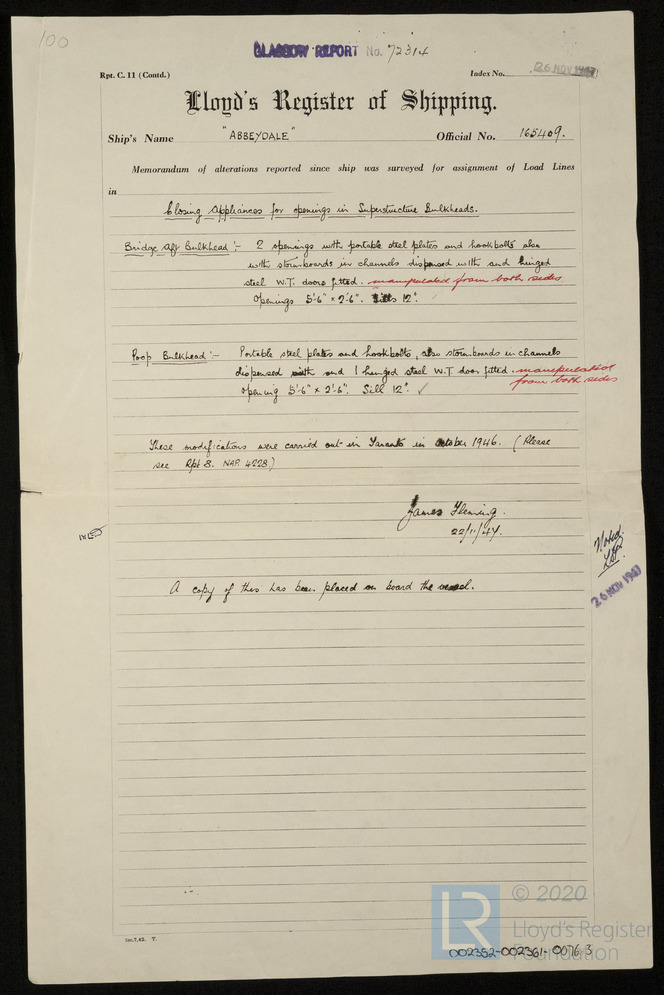 100
GLASGOW REPORT No. 72314
Rpt. C. 11 (Contd.)
Index No.
26 NOV 1947
Lloyd's Register of Shipping.
Ship's Name "ABBEYDALE" Official No. 165409.
Memorandum of alterations reported since ship was surveyed for assignment of Load Lines
in
Closing Appliances for openings in Superstructure Bulkheads.
Bridge Aft Bulkhead :- 2 openings with portable steel plates and hookbolts also
with stormboards in channels dispensed with and hinged
steel W.T. doors fitted. manipulated from both sides
Openings 5'-6" x 2'-6". Sills 12".
Poop Bulkhead :- Portable steel plates and hookbolts, also stormboards in channels
dispensed with and 1 hinged steel W.T door fitted. manipulation
from both sides
opening 5'-6" x 2'-6". Sill 12". ✓
These modifications were carried out in Taranto in October 1946. (Please
see Rpt 8. NAP. 4228)
James Fleming.
22/11/47.
Noted
26 NOV 1947
A copy of this has been placed on board the vessel.
7.
© 2020
LR
Lloyd's Register
Foundation
002352-002361-0076 3